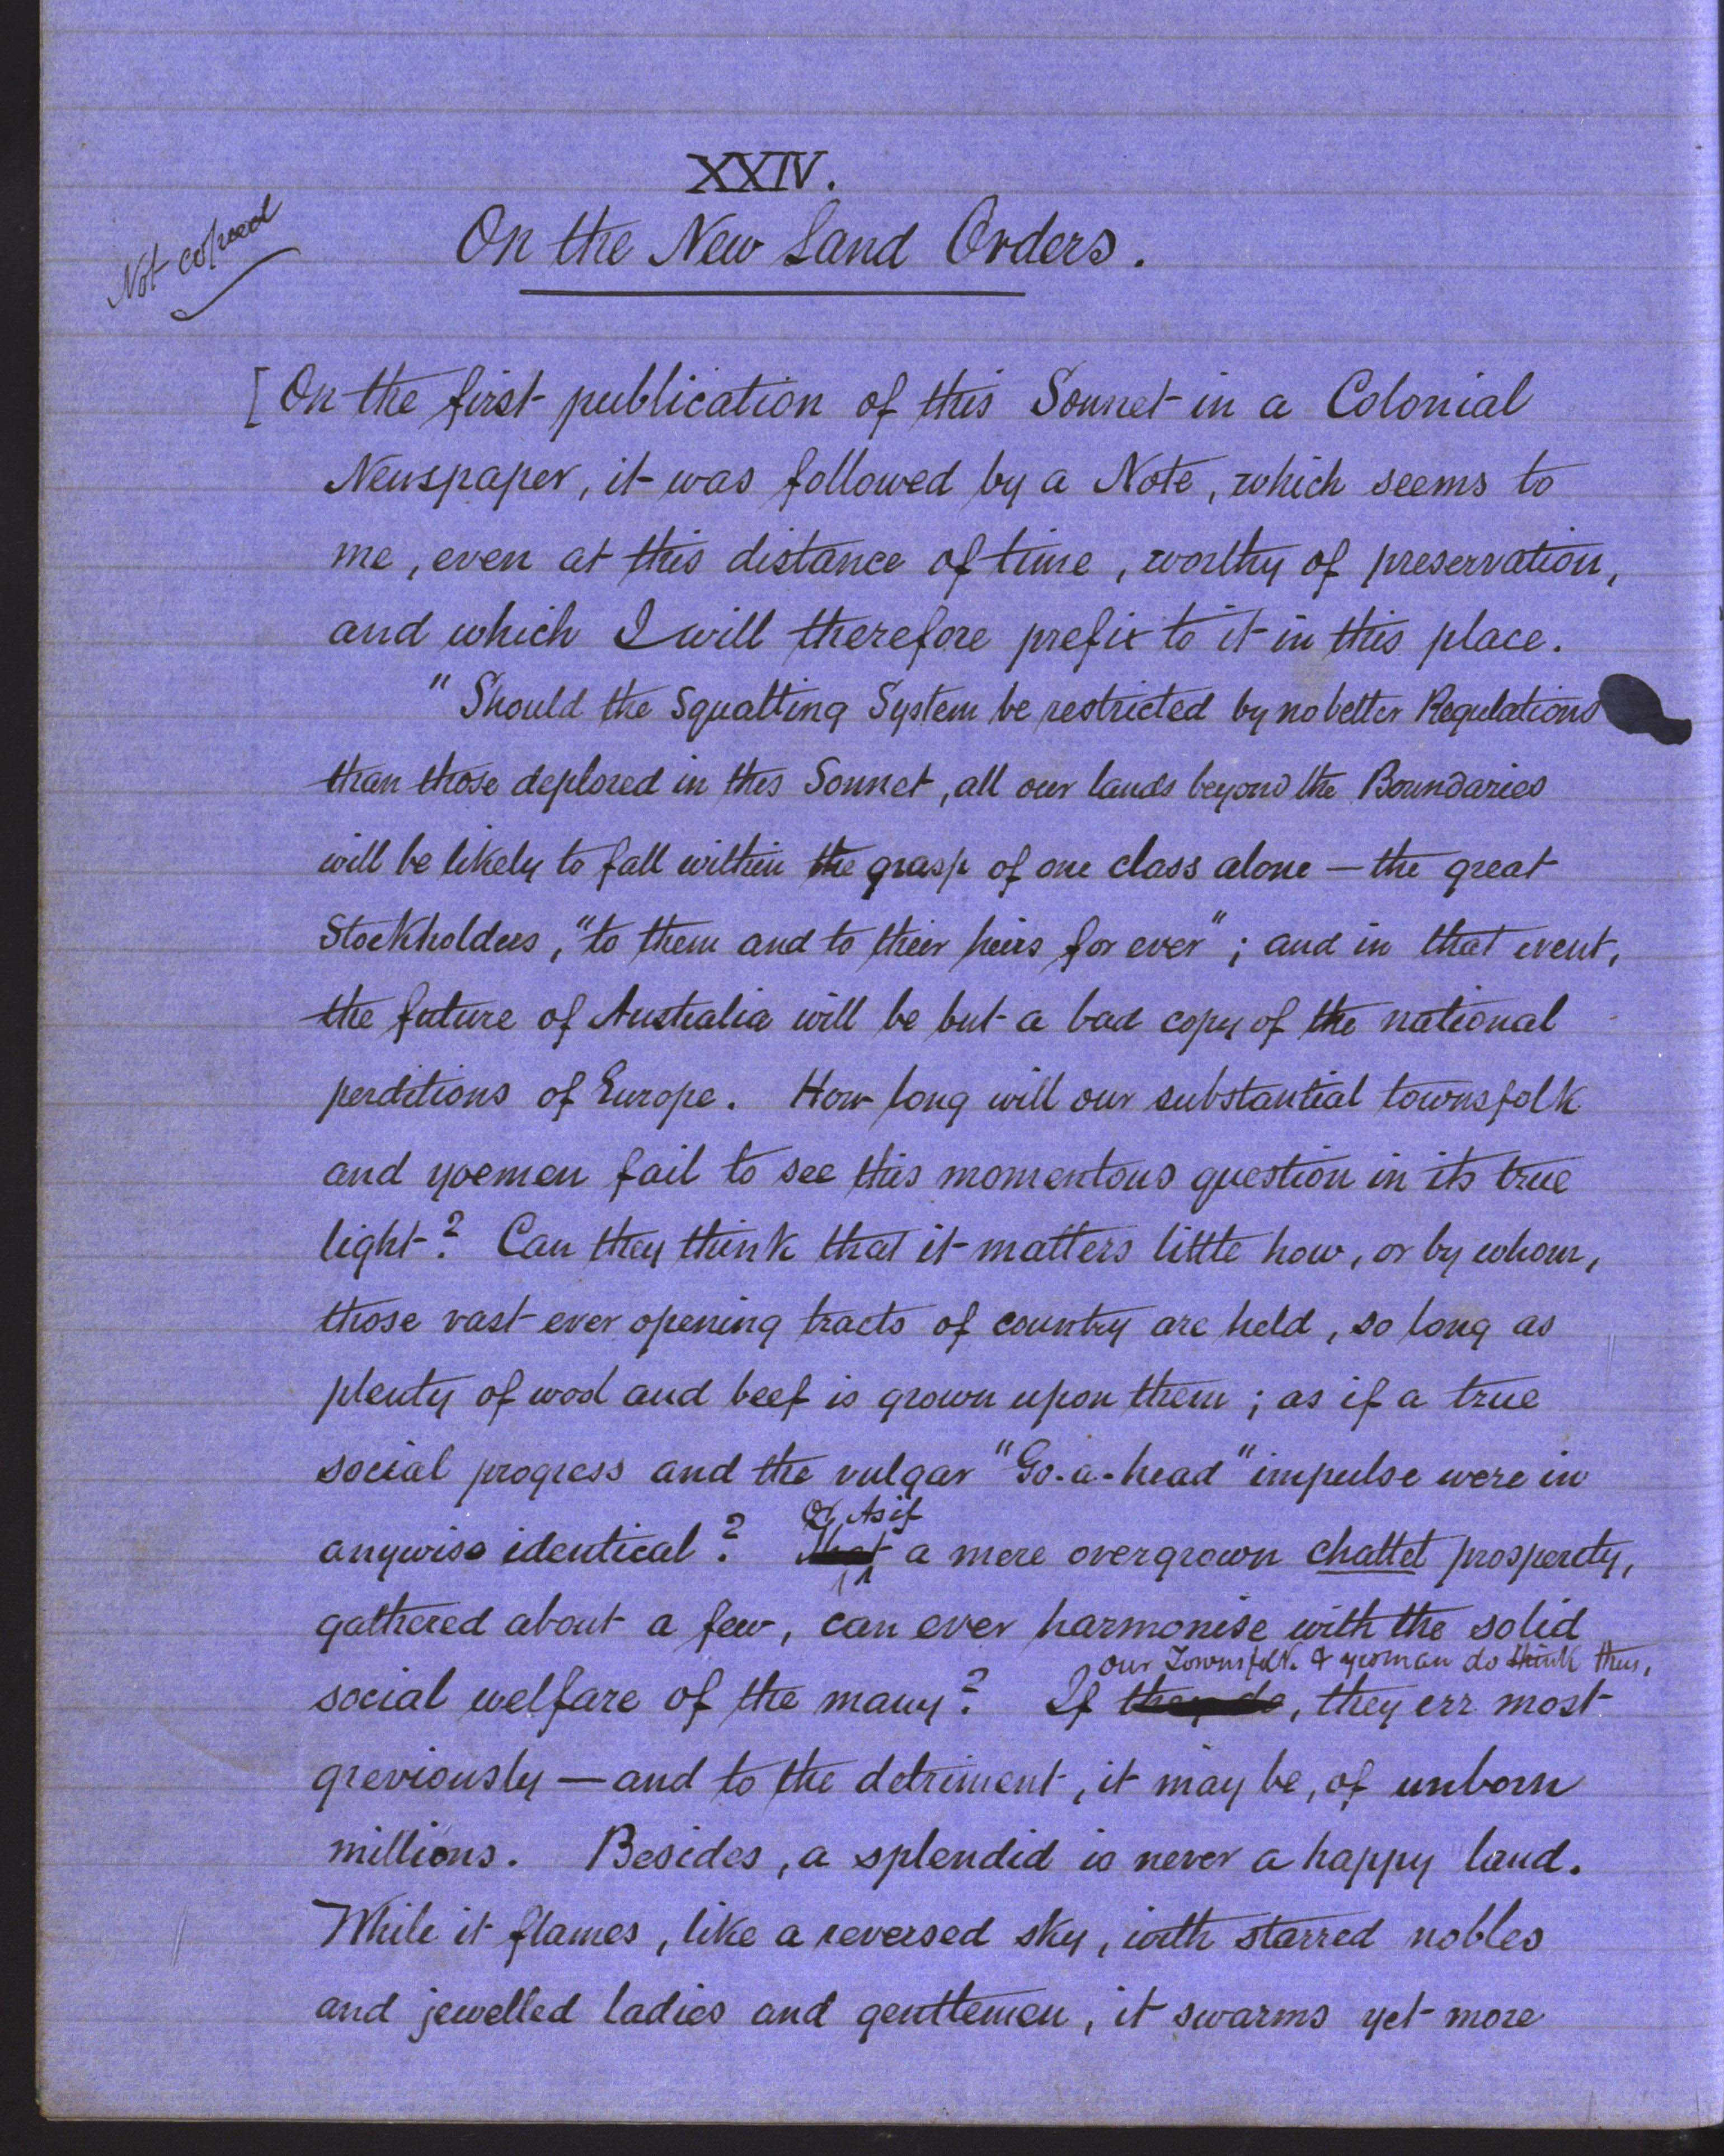 XXIV.
Not copied
On the New Land Orders.
[On the first publication of this Sonnet in a Colonial
Newspaper, it was followed by a Note, which seems to
me, even at this distance of time, worthy of preservation,
and which I will therefore prefix to it in this place.
"Should the Squatting System be restricted by no better Regulations
than those deplored in this Sonnet, all our lands beyond the Boundaries
will be likely to fall within the grasp of one class alone — the great
Stockholders, "to them and to their heirs for ever"; and in that event,
the future of Australia will be but a bad copy of the national
perditions of Europe. How long will our substantial townsfolk
and yoemen fail to see this momentous question in its true
light? Can they think that it matters little how, or by whom,
those vast ever opening tracts of country are held, so long as
plenty of wool and beef is grown upon them; as if a true
social progress and the vulgar "Go-a-head" impulse were in
Or, As if
anywise identical? That a mere overgrown chattel prosperity,
gathered about a few, can ever harmonise with the solid
our Townsfolk & yeoman do think thus,
social welfare of the many? If they do, they err most
greviously — and to the detriment, it may be, of unborn
millions. Besides, a splendid is never a happy land.
While it flames, like a reversed sky, with starred nobles
and jewelled ladies and genttemen, it swarms yet more